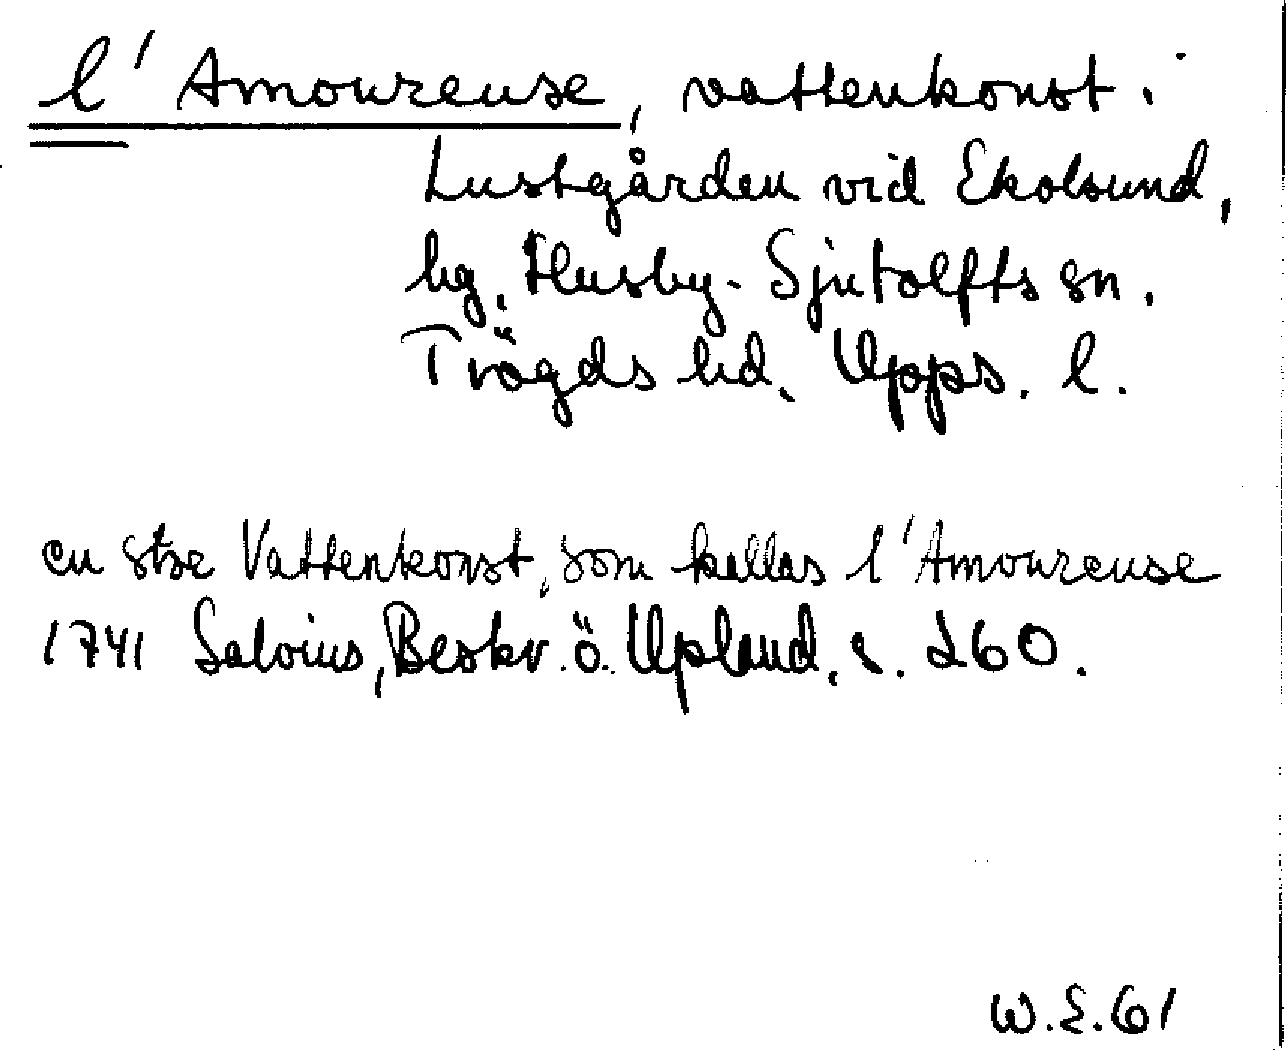 l'Amoureuse, vattenkonst i
Lustgården vid Ekolsund,
hg. Husby-Sjutolfts sn.
Trögds hd. Upps. l.
en stor Vattenkonst, som kallas l'Amoureuse
1741 Salvius, Beskr. ö. Upland, s. 260.
W.E.61